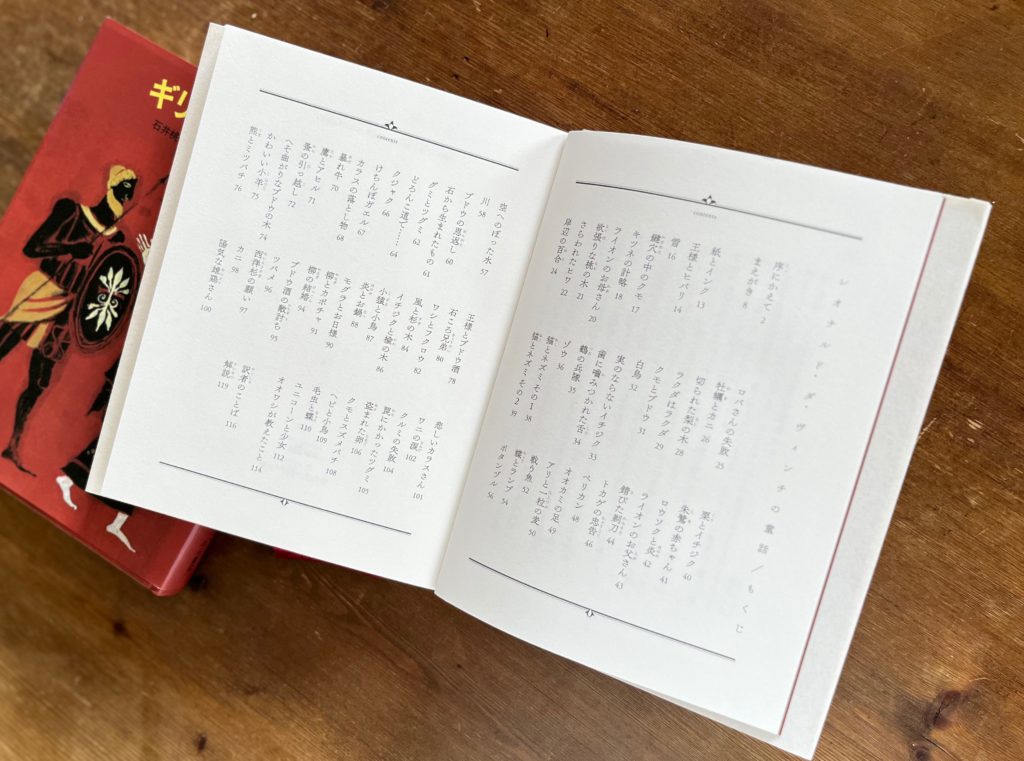 contents
レオナルド・ダ・ヴィンチの童話／もくじ
序にかえて 2
まえがき 8
紙とインク 13
王様とヒバリ 14
雪 16
鍵穴の中のクモ 17
キツネの計略 18
ライオンのお母さん 20
欲張りな桃の木 21
さらわれたヒワ 22
岸辺の百合 24
ロバさんの失敗 25
牡蠣とカニ 26
切られた梨の木 28
ラクダはラクダ 29
クモとブドウ 31
白鳥 32
実のならないイチジク 33
歯に噛みつかれた舌 34
鶴の兵隊 35
ゾウ 36
猫とネズミ その1 38
猫とネズミ その2 39
栗とイチジク 40
朱鷺の赤ちゃん 41
ロウソクと炎 42
ライオンのお父さん 43
錆びた剃刀 44
トカゲの忠告 46
ペリカン 48
オオカミの足 49
アリと一粒の麦 50
戦う魚 52
蝶とランプ 54
ボタンヅル 56
contents
空へのぼった水 57
川 58
ブドウの恩返し 60
石から生まれたもの 61
グミとツグミ 62
どろんこ道で…… 64
クジャク 66
けちんぼガエル 67
カラスの落とし物 68
暴れ牛 70
鷹とアヒル 71
蚤の引っ越し 72
へそ曲がりなブドウの木 74
かわいい小羊 75
熊とミツバチ 76
王様とブドウ酒 78
石ころ兄弟 80
ワシとフクロウ 82
風と杉の木 84
イチジクと楡の木 86
小猿と小鳥 87
炎とお鍋 88
モグラとお日様 90
柳とカボチャ 91
柳の結婚 94
ブドウ酒の敵討ち 95
ツバメ 96
西洋杉の願い 97
カニ 98
陽気な雄鶏さん 100
悲しいカラスさん 101
ワニの涙 102
クルミの失敗 104
罠にかかったツグミ 105
盗まれた卵 106
クモとスズメバチ 108
ヘビと小鳥 109
毛虫と蝶 110
ユニコーンと少女 112
オオワシが教えたこと 114
訳者のことば 116
解説 119
ギリ
石井